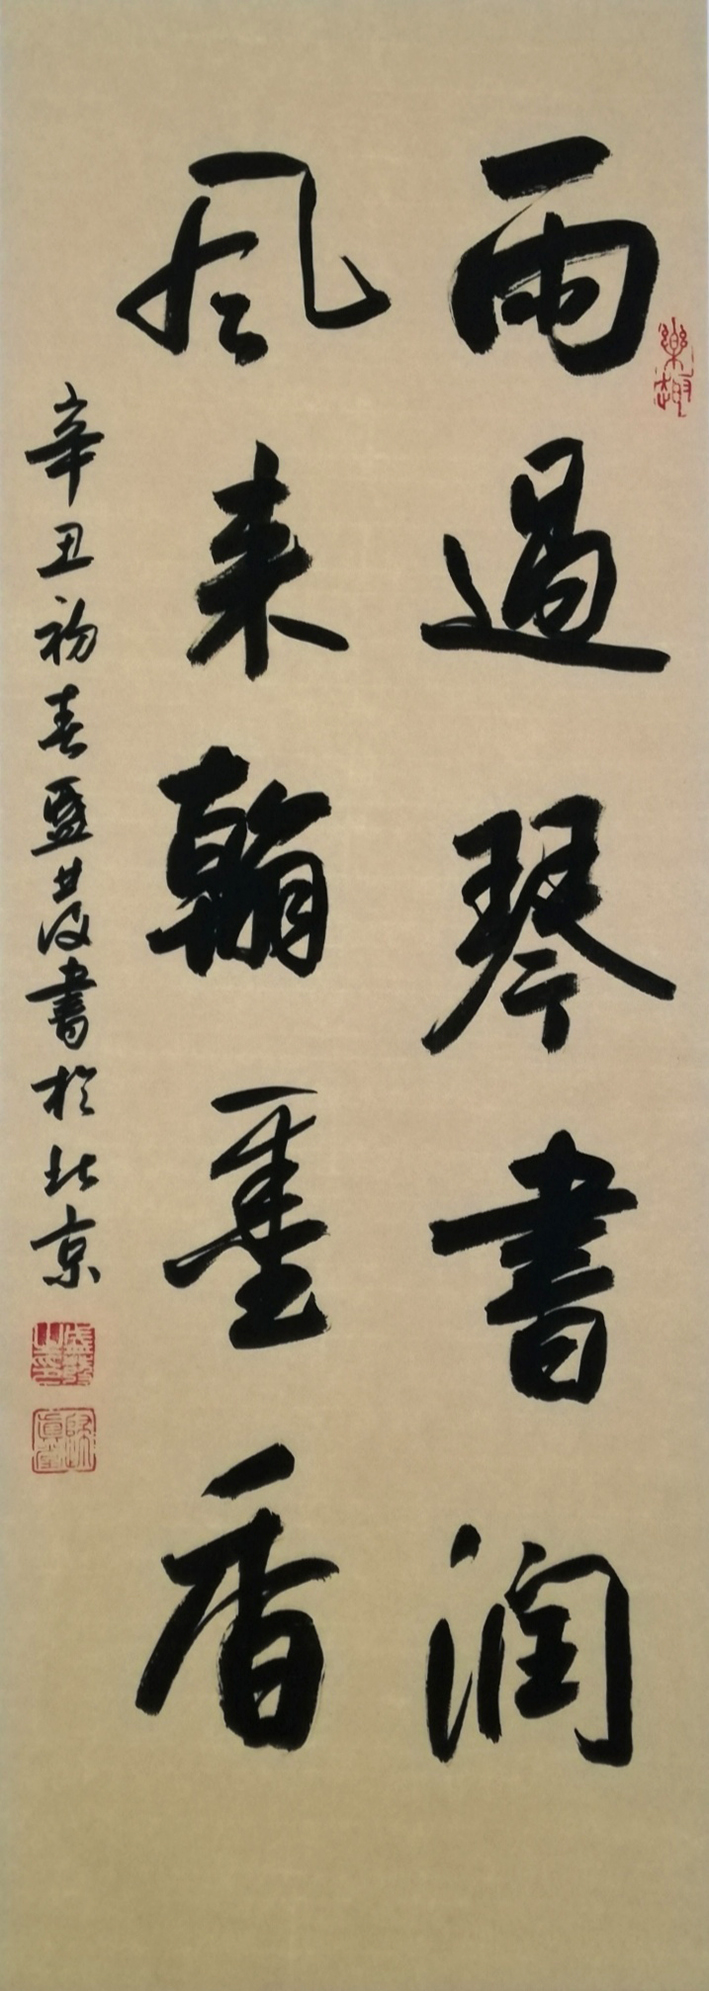 雨過琴書潤
風来翰墨香
辛丑初春盛茂書於北京
樂趣